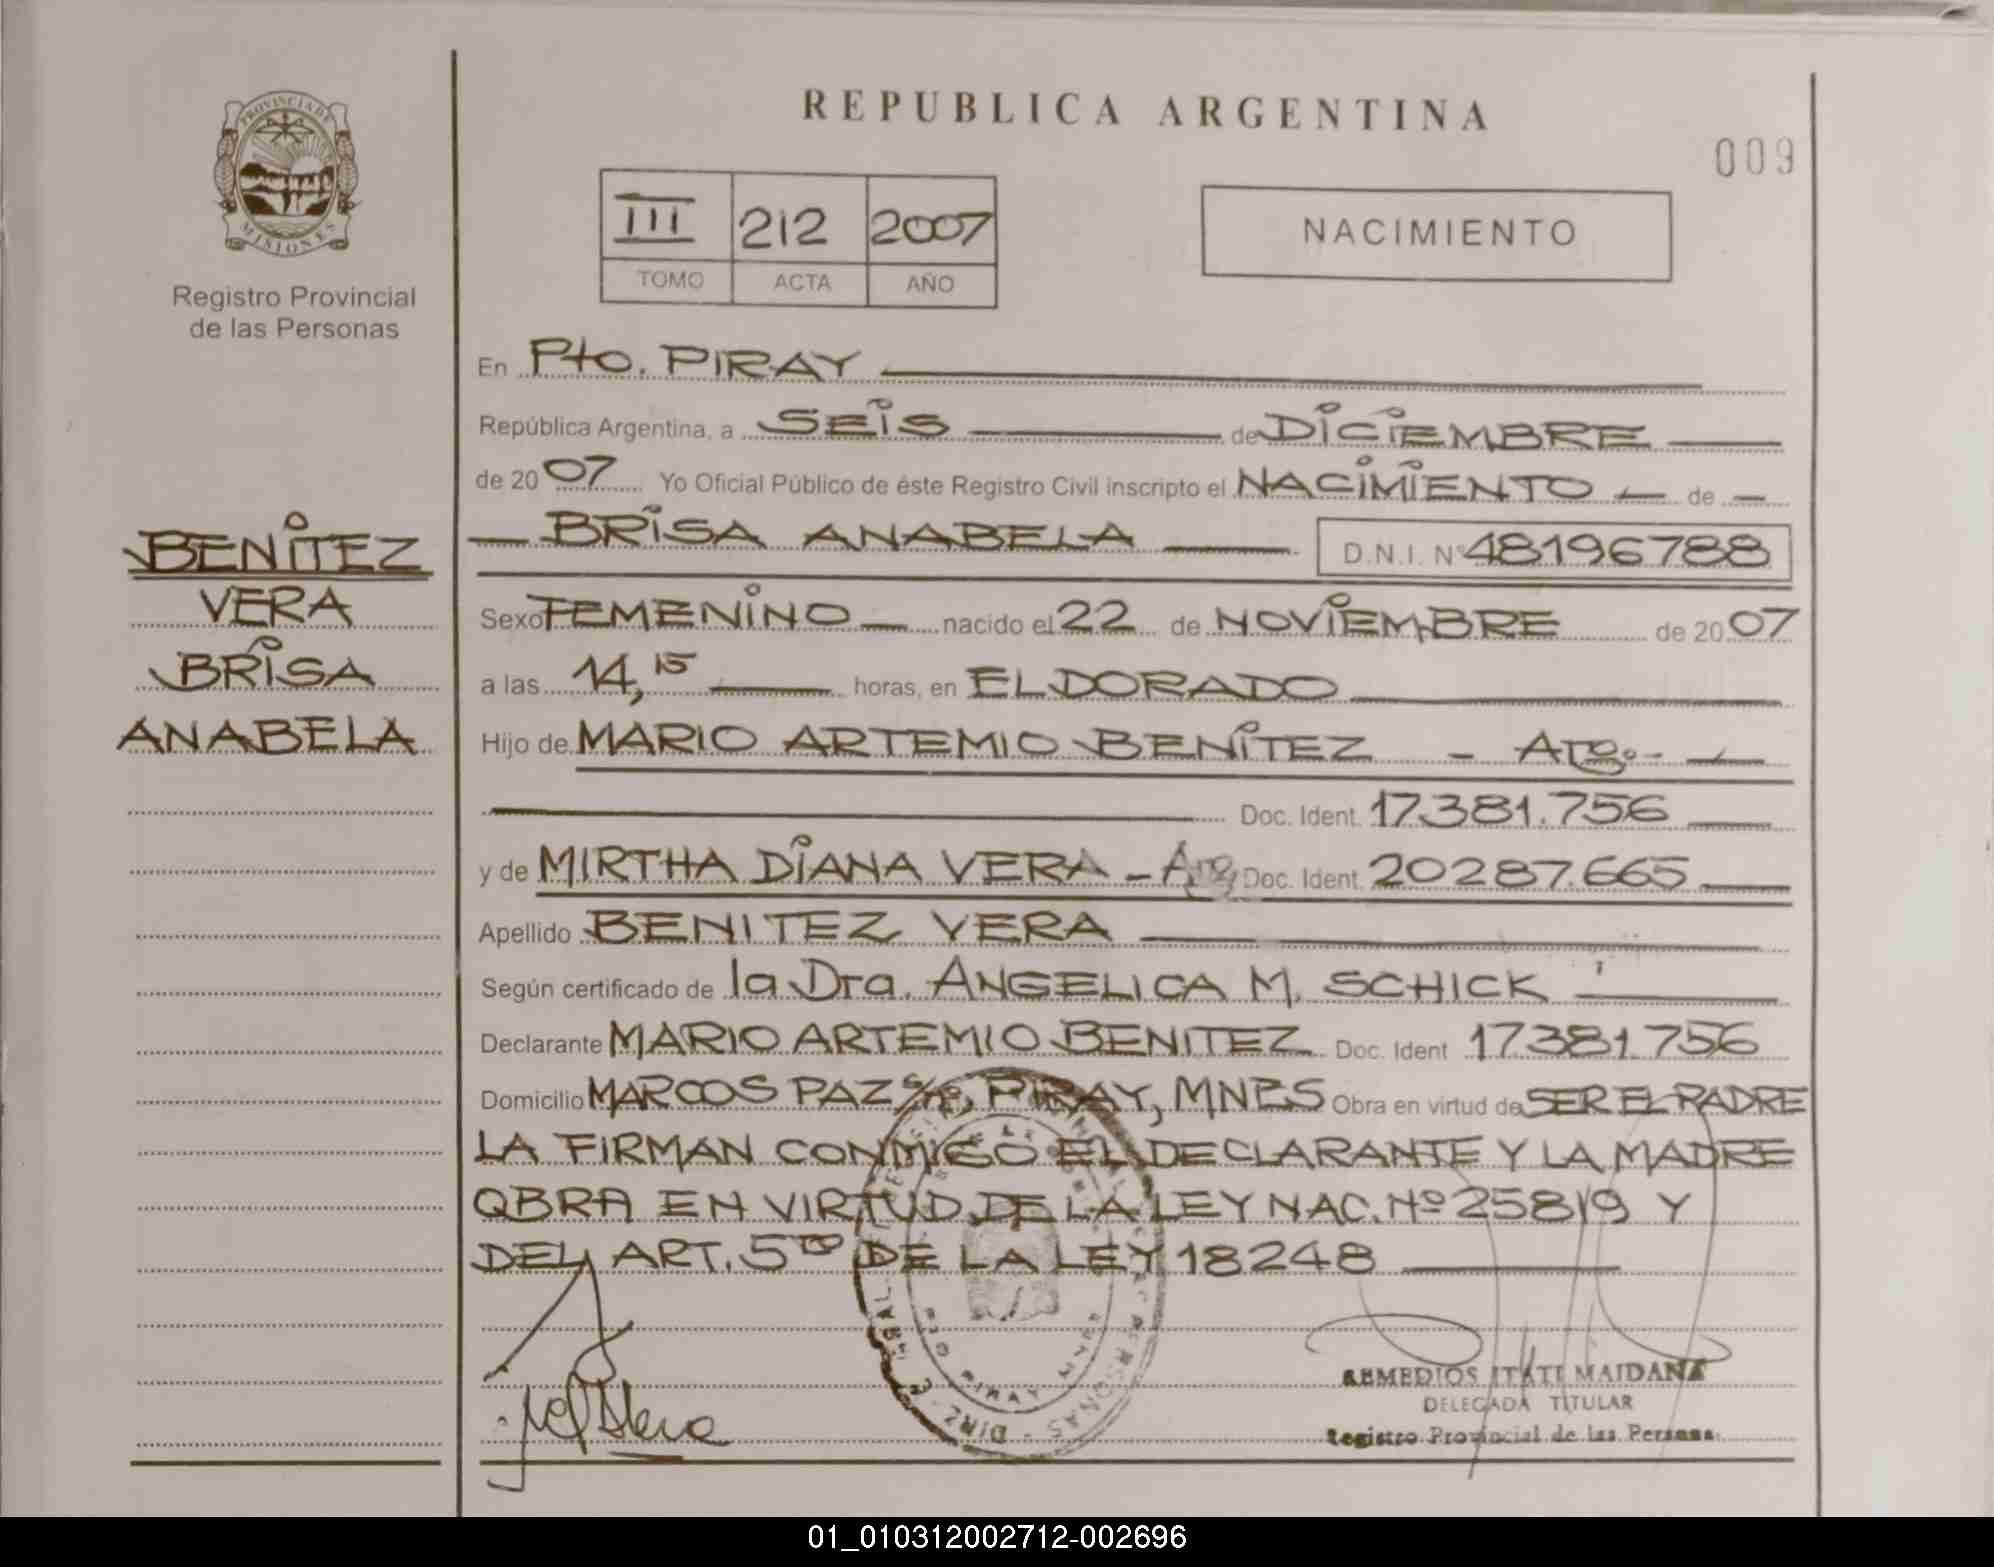 PROVINCIA DE
MISIONES
Registro Provincial
de las Personas
BENITEZ
VERA
BRISA
ANABELA
REPUBLICA ARGENTINA
009
III 212 2007
TOMO ACTA AÑO
NACIMIENTO
En Pto. PIRAY
República Argentina, a SEIS de DICIEMBRE
de 2007 Yo Oficial Público de éste Registro Civil inscripto el NACIMIENTO de
BRISA ANABELA D.N.I. Nº 48196788
Sexo FEMENINO nacido el 22 de NOVIEMBRE de 2007
a las 14,15 horas, en ELDORADO
Hijo de MARIO ARTEMIO BENITEZ - Arg.-
Doc. Ident. 17.381.756
y de MIRTHA DIANA VERA - Arg Doc. Ident. 20287.665
Apellido BENITEZ VERA
Según certificado de la Dra. ANGELICA M. SCHICK
Declarante MARIO ARTEMIO BENITEZ Doc. Ident 17381.756
Domicilio MARCOS PAZ PIRAY, MNES Obra en virtud de SER EL PADRE
LA FIRMAN CONMIGO EL DECLARANTE Y LA MADRE
OBRA EN VIRTUD DE LA LEY NAC. Nº 25819 Y
DEL ART. 5to DE LA LEY 18248
REMEDIOS ITATI MAIDANA
DELEGADA TITULAR
Registro Provincial de las Personas
01_010312002712-002696